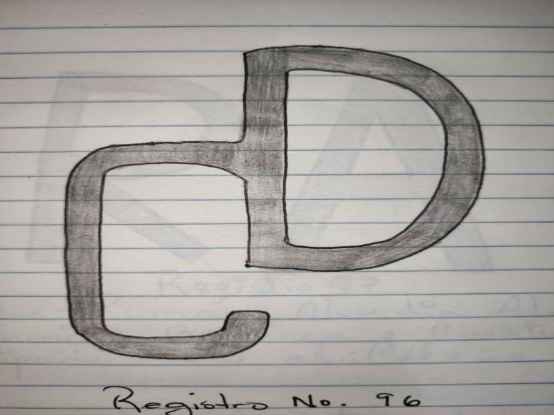 CD
Registro No. 96